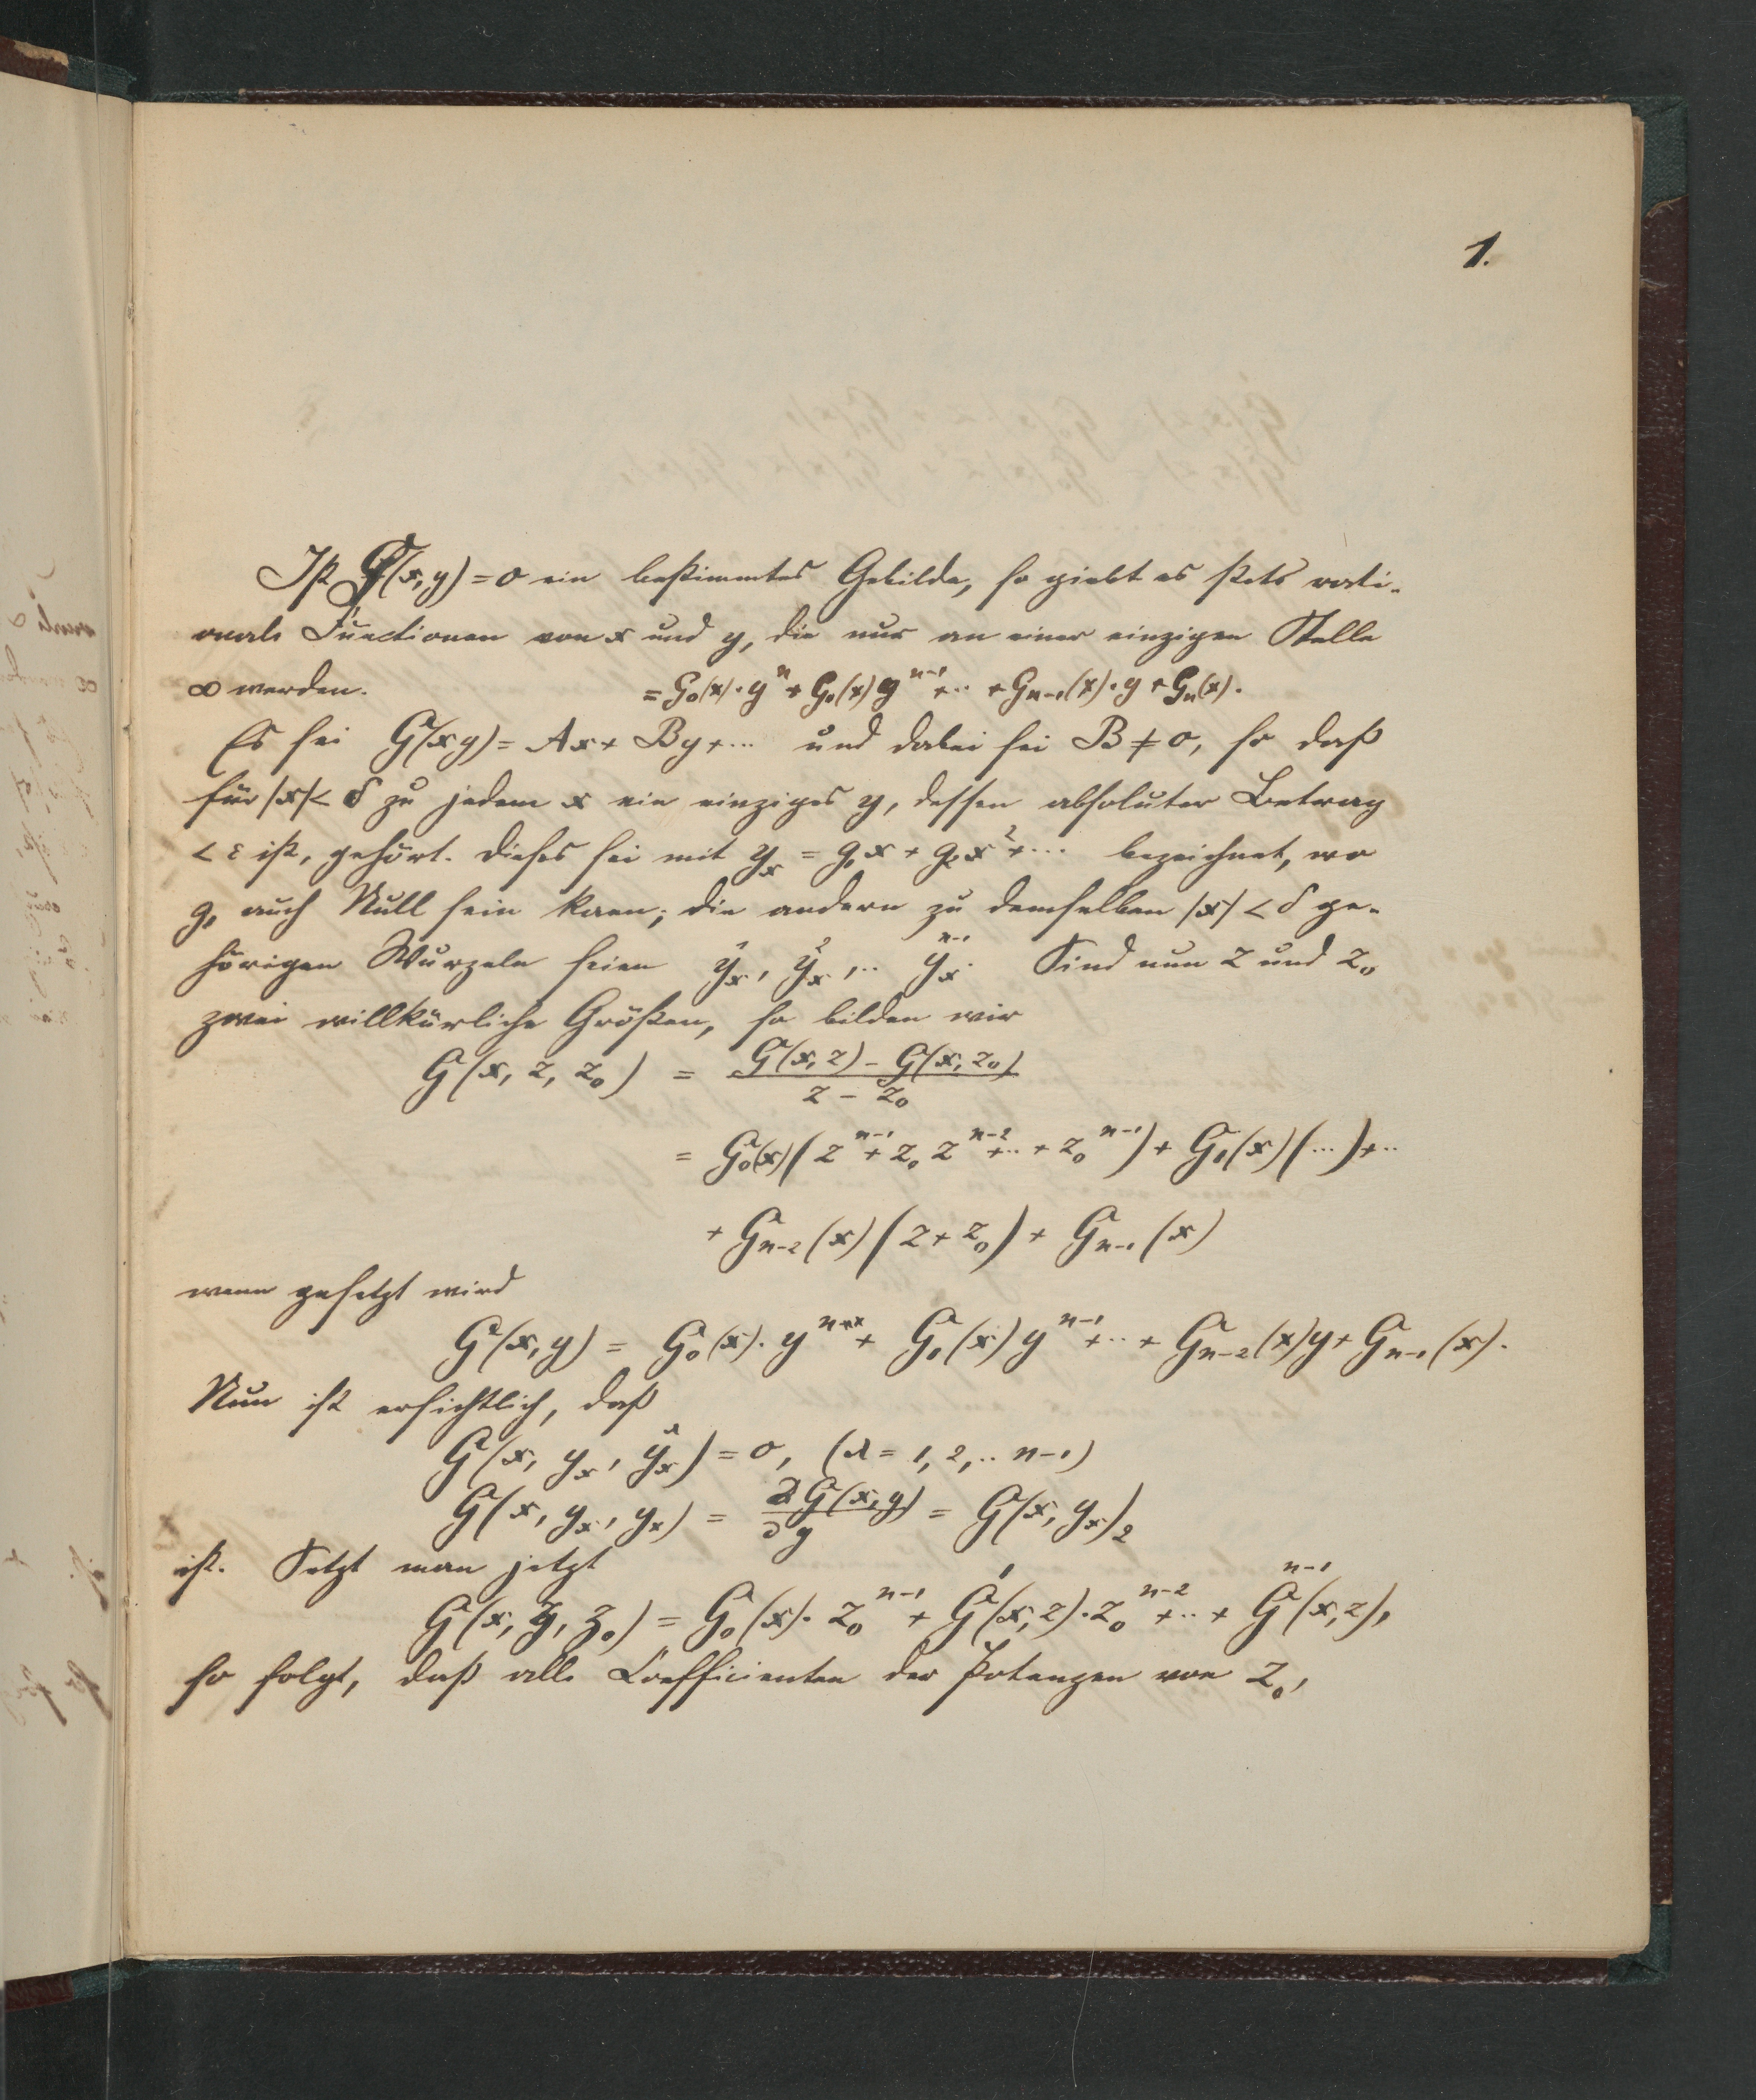 1.
Ist G(x,y) = 0 ein bestimmtes Gebilde, so giebt es stets rati-
onale Functionen von x und y, die nur an einer einzigen Stelle
∞ werden.
= G₀(x)·yⁿ + G₁(x) yⁿ⁻¹ + ·· + Gₙ₋₁(x)·y + Gₙ(x).
Es sei G(xy) = Ax + By + ... und dabei sei B ≠ 0, so daß
für |x| < δ zu jedem x ein einziges y, dessen absoluter Betrag
< ε ist, gehört. Dieses sei mit yₓ = g₁x + g₂x² + ··· bezeichnet, wo
g₁ auch Null sein kann; die andern zu demselben |x| < δ ge-
hörigen Wurzeln seien y¹ₓ, y²ₓ, .. yⁿ⁻¹ₓ. Sind nun z und z₀
zwei willkürliche Größen, so bilden wir
G(x, z, z₀) = (G(x,z) − G(x,z₀)) / (z − z₀)
= G₀(x)(zⁿ⁻¹ + z₀ zⁿ⁻² + ·· + z₀ⁿ⁻¹) + G₁(x)(···) + ··
+ Gₙ₋₂(x)(z + z₀) + Gₙ₋₁(x)
wenn gesetzt wird
G(x,y) = G₀(x)·yⁿ + G₁(x) yⁿ⁻¹ + ·· + Gₙ₋₂(x)y + Gₙ₋₁(x).
Nun ist ersichtlich, daß
G(x, yₓ, y^λₓ) = 0, (λ = 1, 2, .. n−1)
G(x, yₓ, yₓ) = ∂G(x,y)/∂y = G(x, yₓ)₂
ist. Setzt man jetzt
G(x, z, z₀) = G₀(x)· z₀ⁿ⁻¹ + G¹(x,z)·z₀ⁿ⁻² + ·· + Gⁿ⁻¹(x,z),
so folgt, daß alle Coefficienten der Potenzen von z₀,